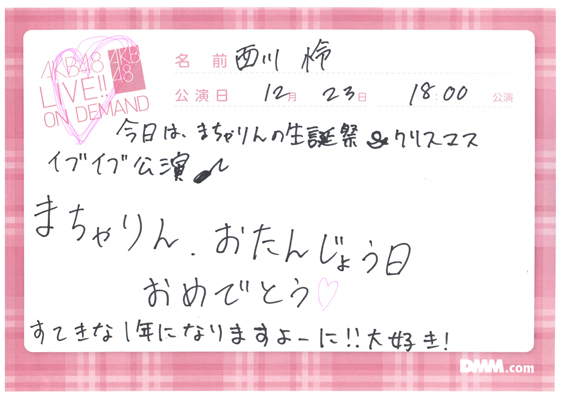 AKB48
LIVE!!
ON DEMAND
AKB
48
名 前 西川 怜
公演日 12月 23日 18:00 公演
今日は、まちゃりんの生誕祭&クリスマス
イブイブ公演♪
まちゃりん、おたんじょう日
おめでとう♡
すてきな1年になりますよーに!!大好き!
DMM.com